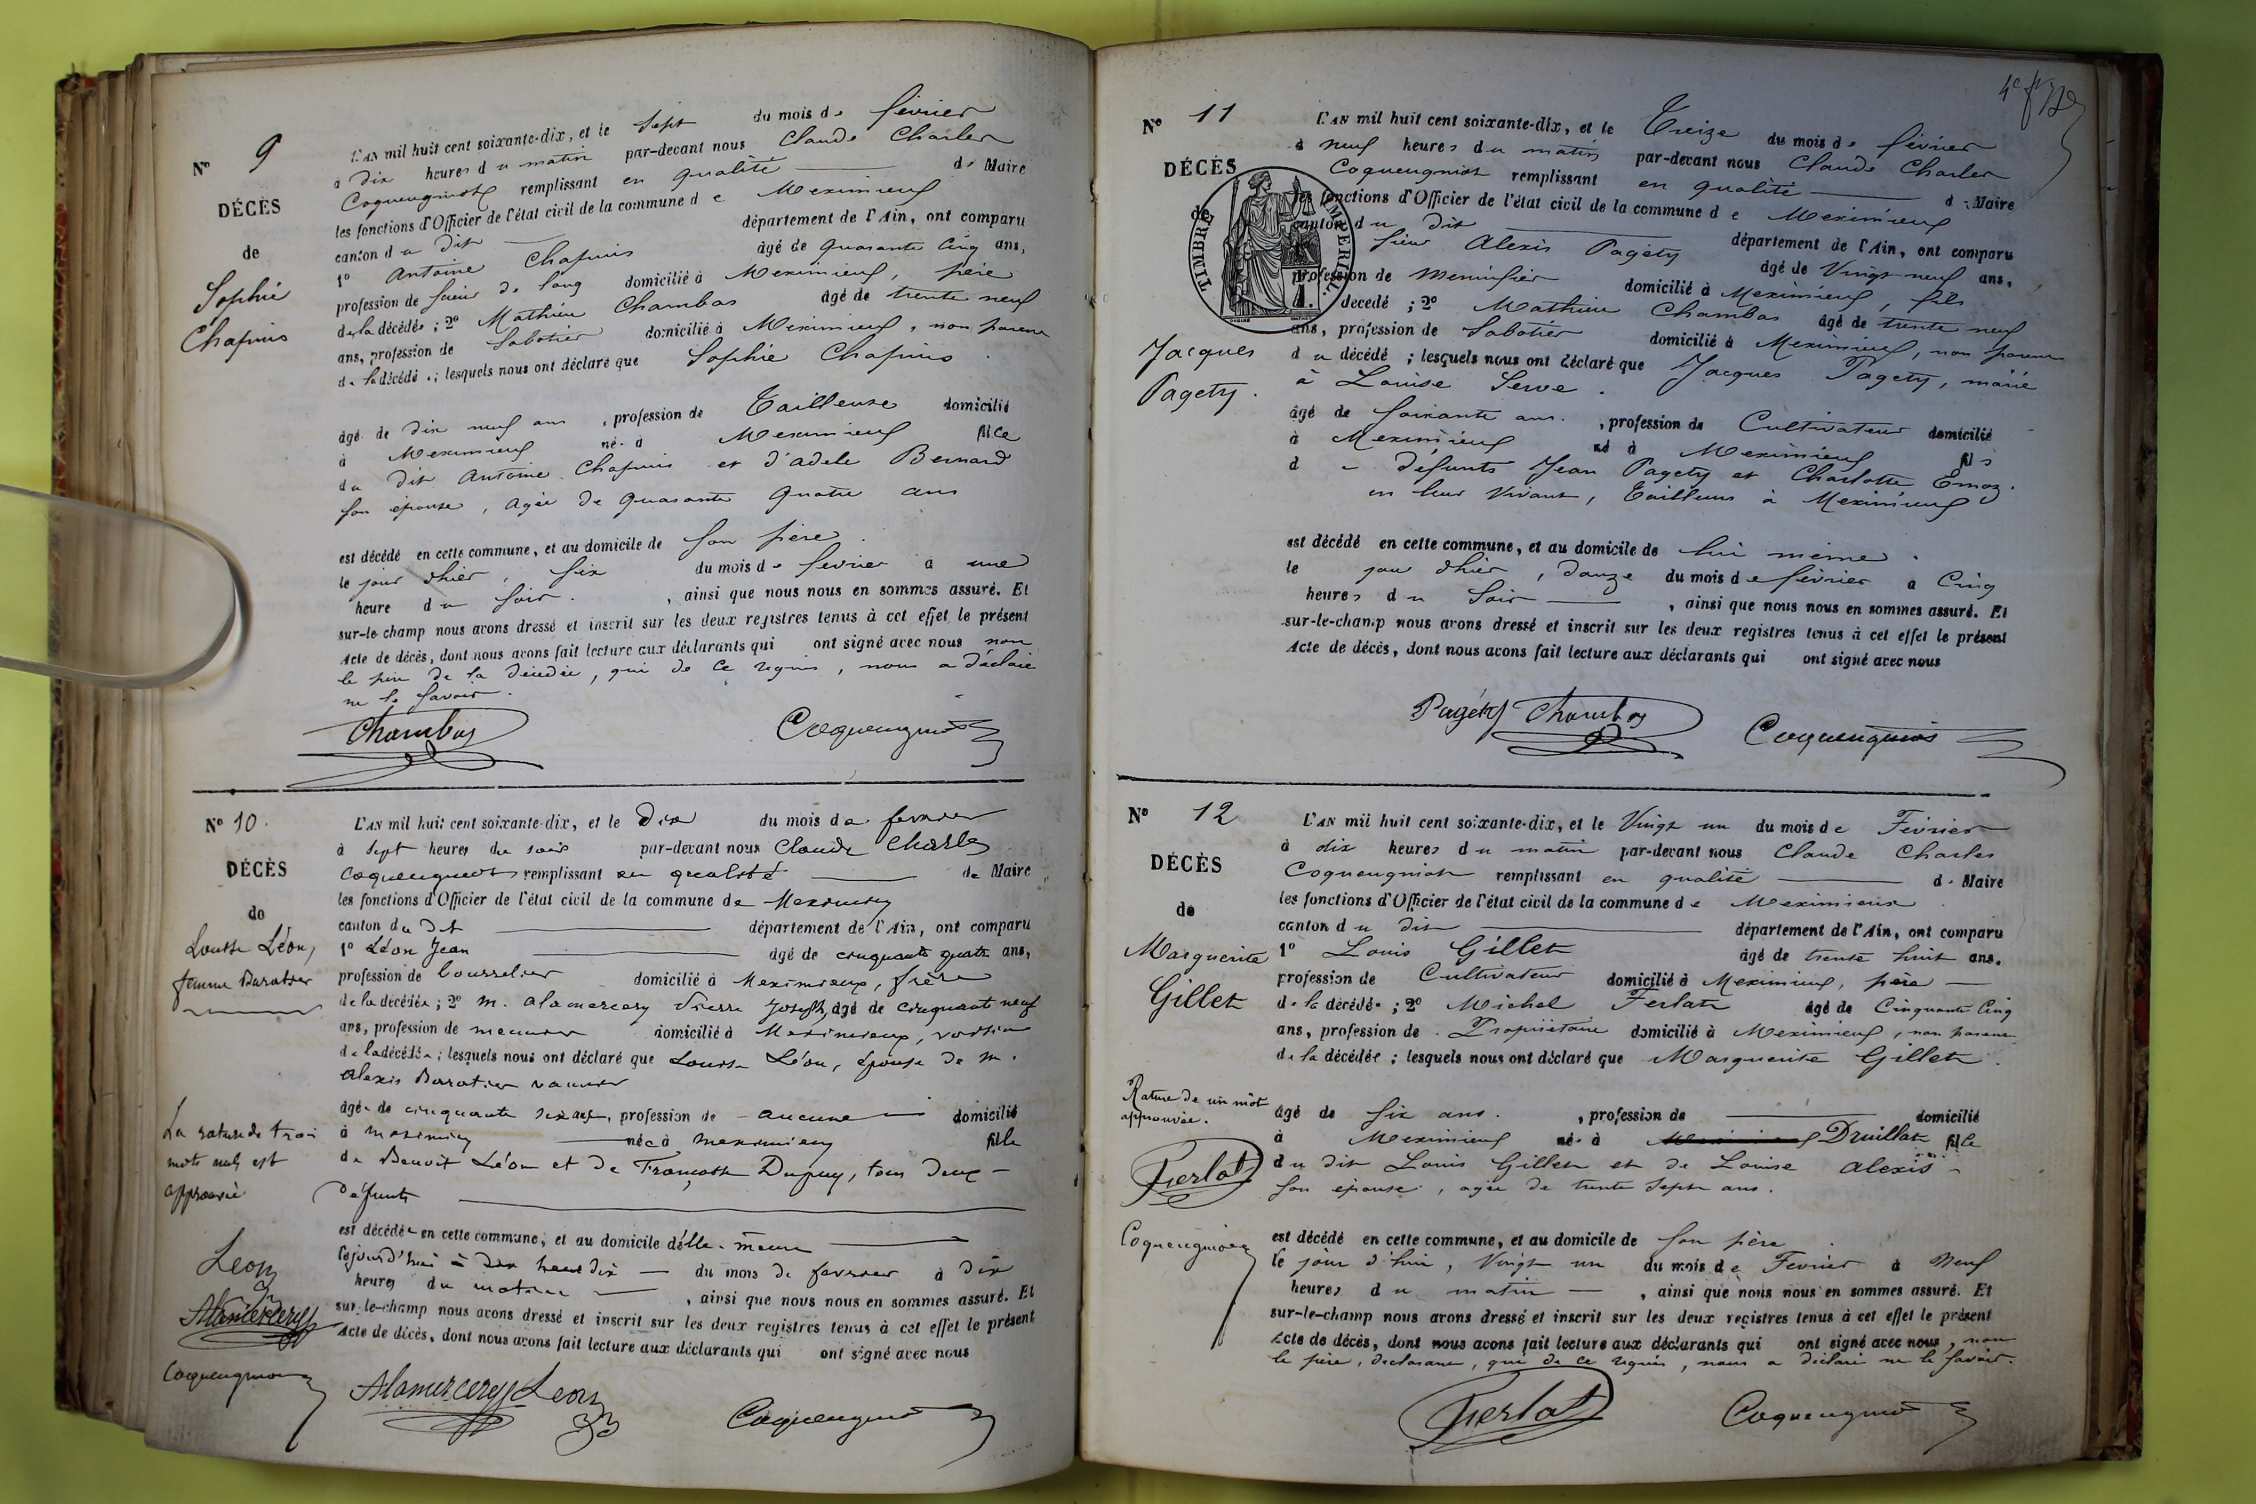 Nº 9
DÉCÈS
de
Sophie
Chapuis
L'AN mil huit cent soixante-dix, et le sept du mois de février
à dix heures du matin par-devant nous Claude Charles
Coqueugniot remplissant en qualité de Maire
les fonctions d'Officier de l'état civil de la commune de Meximieux
canton du dit département de l'Ain, ont comparu
1º Antoine Chapuis âgé de quarante cinq ans,
profession de scieur de long domicilié à Meximieux, père
de la décédée ; 2º Mathieu Chambas âgé de trente neuf
ans, profession de Sabotier domicilié à Meximieux, non parent
de la décédée ; lesquels nous ont déclaré que Sophie Chapuis
âgé de dix neuf ans, profession de Tailleuse domicilié
à Meximieux né à Meximieux fille
du dit Antoine Chapuis et d'adele Bernard
son épouse, agée de quarante quatre ans
est décédé en cette commune, et au domicile de son père.
le jour d'hier, six du mois de février à une
heure du soir. , ainsi que nous nous en sommes assuré. Et
sur-le-champ nous avons dressé et inscrit sur les deux registres tenus à cet effet le présent
Acte de décès, dont nous avons fait lecture aux déclarants qui ont signé avec nous non
le père de la décédée, qui de ce requis, nous a déclaré
ne le savoir.
Chambas Coqueugniot
Nº 10.
DÉCÈS
de
Louise Léon,
femme Baratier
La rature de trois
mots nuls est
approuvée
Leon
Alamercery
Coqueugniot
L'AN mil huit cent soixante-dix, et le dix du mois de février
à sept heures du soir par-devant nous Claude Charles
Coqueugniot remplissant en qualité de Maire
les fonctions d'Officier de l'état civil de la commune de Meximieux
canton du dit département de l'Ain, ont comparu
1º Léon Jean âgé de cinquante quatre ans,
profession de bourrelier domicilié à Meximieux, frère
de la décédée ; 2º M. Alamercery Pierre Joseph, âgé de cinquante neuf
ans, profession de menuisier domicilié à Meximieux, voisin
de la décédée ; lesquels nous ont déclaré que Louise Léon, épouse de M.
Alexis Baratier vannier
âgée de cinquante six ans, profession de aucune domicilié
à Meximieux née à Meximieux fille
de Benoit Léon et de Françoise Dupuy, tous deux
défunts
est décédée en cette commune, et au domicile d'elle-même
cejourd'hui à dix heures dix du mois de février à dix
heures du matin , ainsi que nous nous en sommes assuré. Et
sur-le-champ nous avons dressé et inscrit sur les deux registres tenus à cet effet le présent
Acte de décès, dont nous avons fait lecture aux déclarants qui ont signé avec nous
Alamercery Leon Coqueugniot
Nº 11
DÉCÈS
de
TIMBRE IMPÉRIAL.
Jacques
Pagety.
L'AN mil huit cent soixante-dix, et le Treize du mois de février
à neuf heures du matin par-devant nous Claude Charles
Coqueugniot remplissant en qualité de Maire
les fonctions d'Officier de l'état civil de la commune de Meximieux
canton du dit département de l'Ain, ont comparu
sieur Alexis Pagety âgé de Vingt neuf ans,
profession de Menuisier domicilié à Meximieux, fils
décédé ; 2º Mathieu Chambas âgé de trente neuf
ans, profession de Sabotier domicilié à Meximieux, non parent
du décédé ; lesquels nous ont déclaré que Jacques Pagety, marié
à Louise Serve.
âgé de soixante ans. , profession de Cultivateur domicilié
à Meximieux né à Meximieux fils
de défunts Jean Pagety et Charlotte Emoz.
en leur vivant, Tailleurs à Meximieux
est décédé en cette commune, et au domicile de lui même.
le jour d'hier, douze du mois de février à cinq
heures du soir , ainsi que nous nous en sommes assuré. Et
sur-le-champ nous avons dressé et inscrit sur les deux registres tenus à cet effet le présent
Acte de décès, dont nous avons fait lecture aux déclarants qui ont signé avec nous
Pagéty Chambas Coqueugniot
Nº 12
DÉCÈS
de
Marguerite
Gillet
Rature de un mot
approuvée.
Ferlat
Coqueugniot
L'AN mil huit cent soixante-dix, et le Vingt un du mois de Février
à dix heures du matin par-devant nous Claude Charles
Coqueugniot remplissant en qualité de Maire
les fonctions d'Officier de l'état civil de la commune de Meximieux
canton du dit département de l'Ain, ont comparu
1º Louis Gillet âgé de trente huit ans.
profession de Cultivateur domicilié à Meximieux, père
de la décédée ; 2º Michel Ferlat âgé de Cinquante Cinq
ans, profession de Propriétaire domicilié à Meximieux, non parent
de la décédée ; lesquels nous ont déclaré que Marguerite Gillet.
âgé de six ans. , profession de domicilié
à Meximieux né à Meximieux Druillat fille
du dit Louis Gillet et de Louise Alexis
son épouse, agée de trente sept ans.
est décédé en cette commune, et au domicile de son père.
le jour d'hui, Vingt un du mois de Février à Neuf
heures du matin , ainsi que nous nous en sommes assuré. Et
sur-le-champ nous avons dressé et inscrit sur les deux registres tenus à cet effet le présent
Acte de décès, dont nous avons fait lecture aux déclarants qui ont signé avec nous, non
le père, déclarant, qui de ce requis, nous a déclaré ne le savoir.
Ferlat Coqueugniot